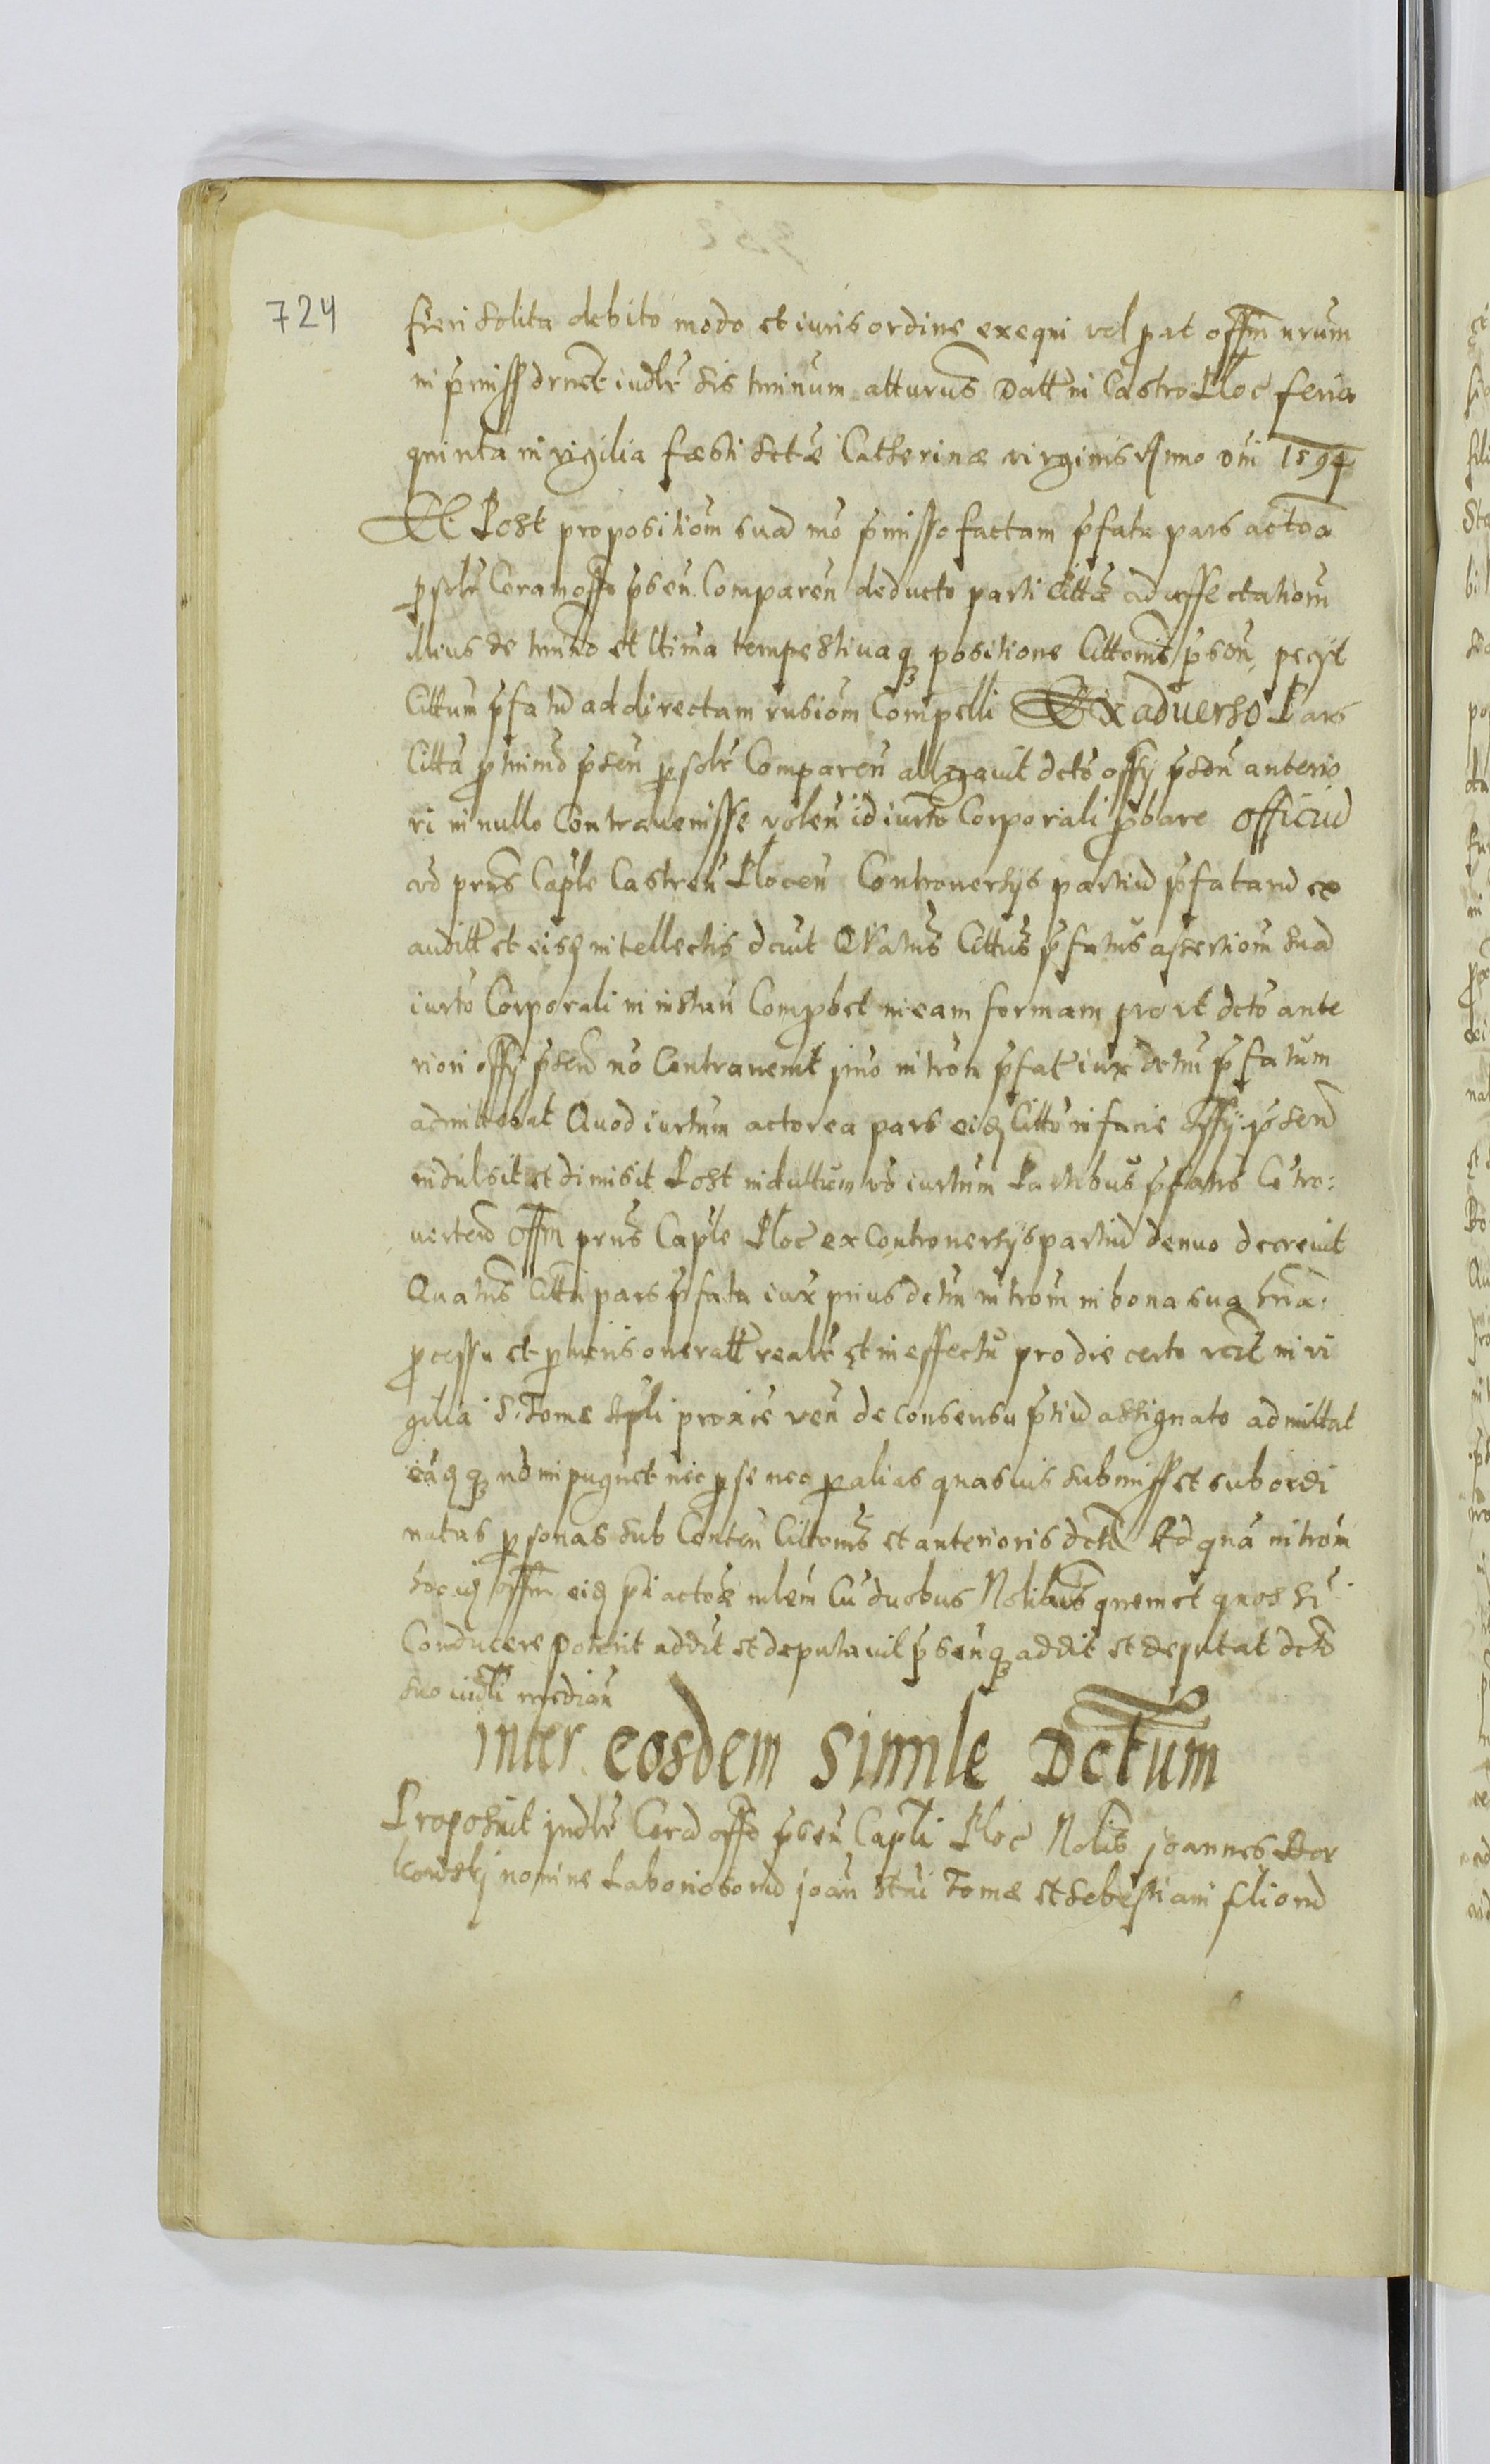 724
fieri solita debito modo et iuris ordine exequi vel pat offm nrum
in pmiss drnet iudlr sis tminum atturus Datt in Castro Ploc feria
quinta in vigilia fæsti sctæ Catherinæ virginis Anno Dni 1594
Et Post propositiom suã mo pmisso factam pfata pars actoa
psolr Coram offo psen Comparen deducto parti Cittæ ad affectatiom
illius de tmino et ltima tempestivaq positione Cittonis psen, pecyt
Cittum pfatu ad directam rnsiom Compelli Ex aduerso Pars
Citta p tminu psen psolr Comparen allegauit dcto offy psen anterio
ri in nullo Contravenisse volen id iurto Corporali pbare Officiu
vo prns Caple Castren Plocen Controuersys partiu pfataru ex
auditt et eisq intellectis dcuit QVatus Cittus pfatus assertiom sua
iurto Corporali in instan Compbet in eam formam prout dcto ante
riori offy psen no Contrauenit imo introm pfat iux dctu pfatum
admittebat Quod iurtum actorea pars eidq Citto in facie Offy psen
indulsit et dimisit Post indultum vo iurtum Partibus pfatis Cõtro:
uerten Offm prns Caple Ploc ex Controuersys partiu denuo decreuit
Quatus Citta pars pfata iux prius dctm introm in bona sua
pcessu et ptucris oneratt realr et in effectu pro die certo vcet in vi
gilia S. Tomæ Apli proxie ven de consensu ptiu assignato admittat
eãq no impugnet nec p se nec p alias quasuis submiss et subordi
natas psonas sub Conten Cittonis et anterioris dcti Ad quã introm
idq offm eidq pti actoæ mlem Cu duobus Nobilibus quem et quos
Conducere poterit addit et deputauit psenq addit et deputat dcto
suo iudli median
Inter eosdem Simile Dctum
Proposuit judlr Corã offo psen Capli Ploc Nobilis Joannes Bor
kowskj nomine Laboriosoru joan Tomæ et Sebestiani filioru